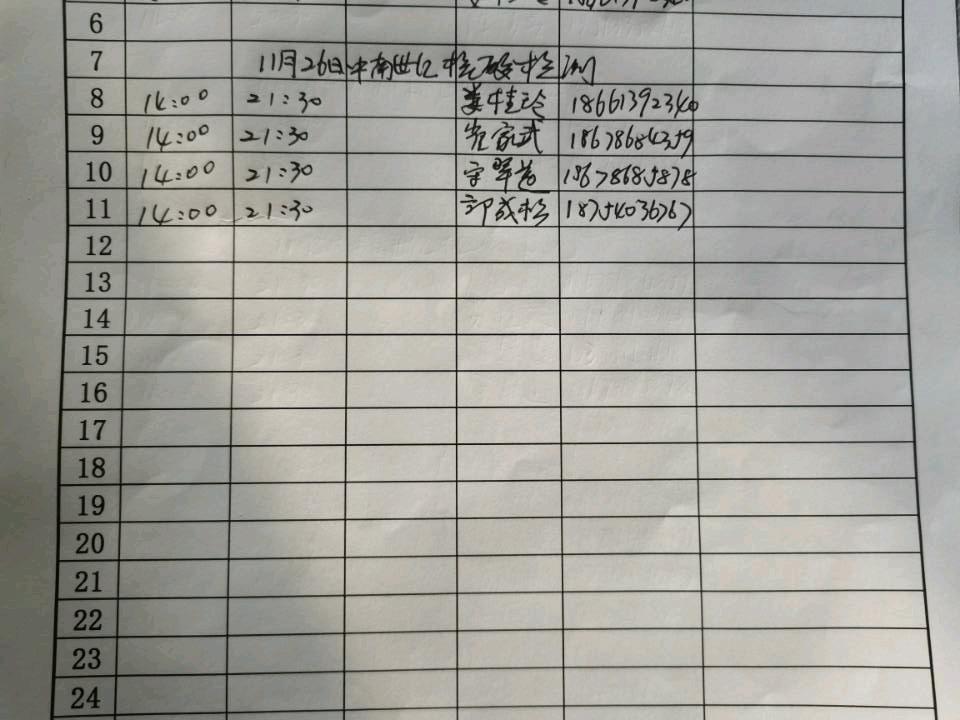 6
7 11月26日中南世纪核酸检测
8 14:00 21:30 娄桂玲 18661392340
9 14:00 21:30 家武 18678684359
10 14:00 21:30 18678685878
11 14:00 21:30 郭成松 18754036767
12
13
14
15
16
17
18
19
20
21
22
23
24